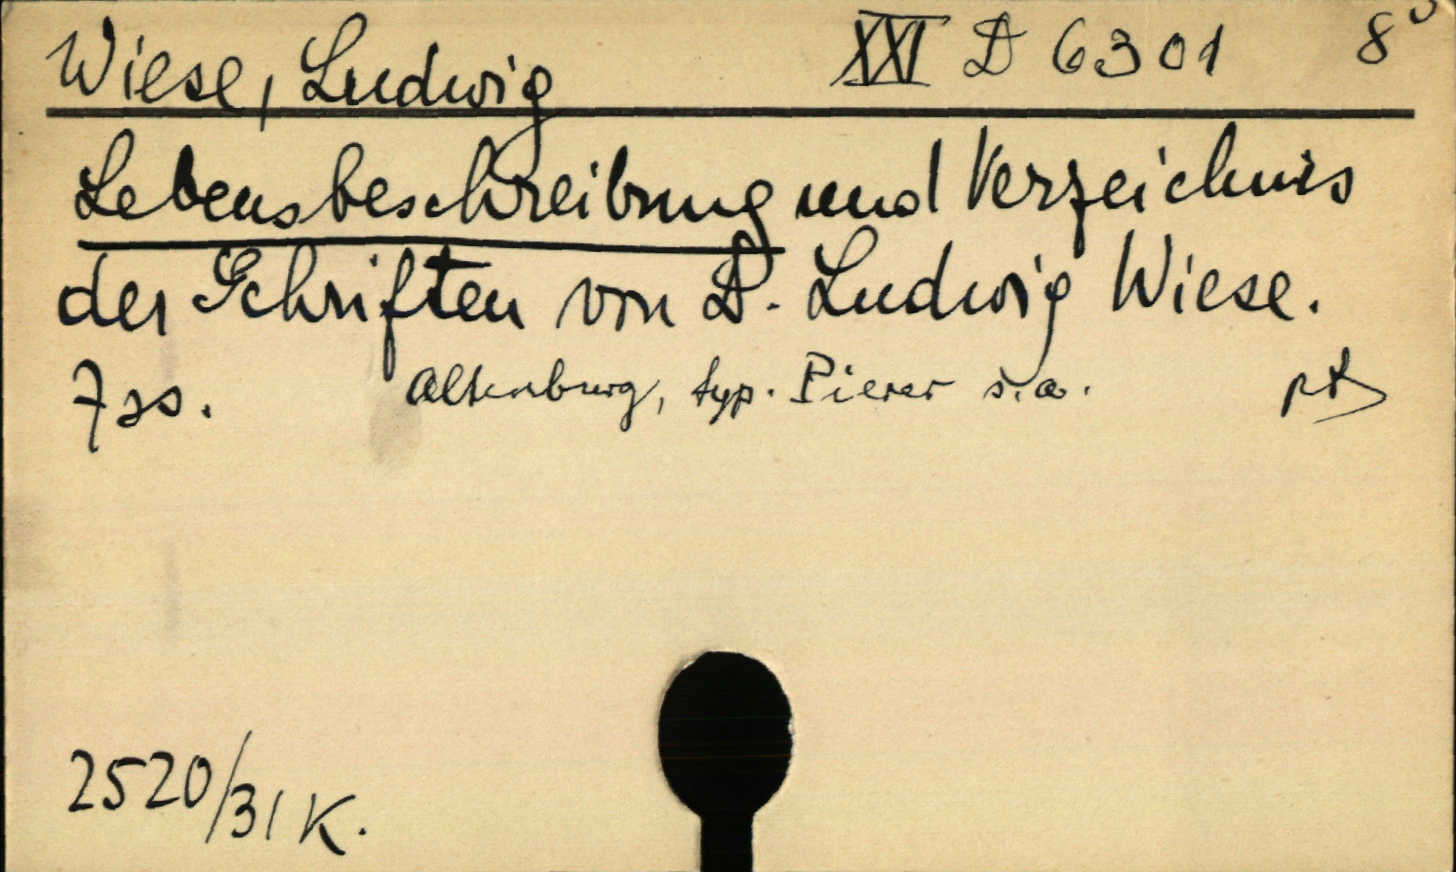 Wiese, Ludwig XXI D 6301 8°
Lebensbeschreibung und Verzeichnis
der Schriften von D. Ludwig Wiese.
7 ss. Altenburg, typ. Pierer s. a.
2520/31 K.